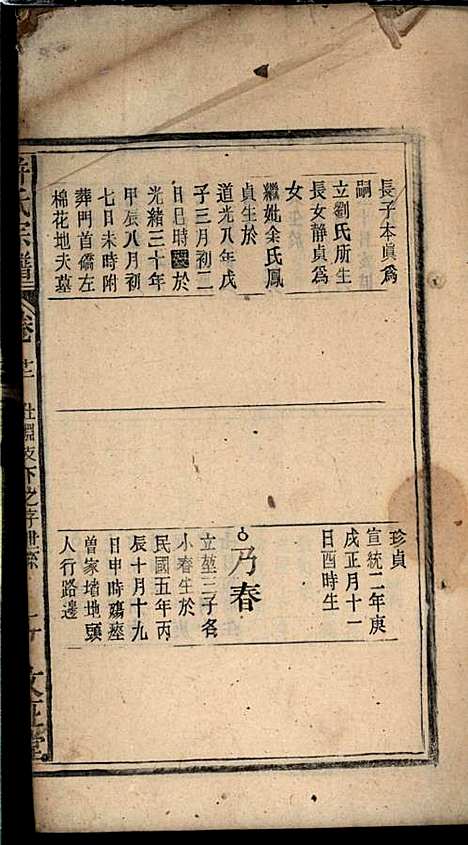 長子本真爲
嗣
立劉氏所生
長女靜貞爲
女
繼妣余氏鳳
貞生於
道光八年戊
子三月初二
日巳時歿於
光緒三十年
甲辰八月初
七日未時附
葬門首僑左
棉花地夫墓
珍貞
宣統二年庚
戌正月十一
日酉時生
乃春
立堃三子名
小春生於
民國五年丙
辰十月十九
日申時殤瘞
曾家堵地頭
人行路邊
氏宗譜
卷